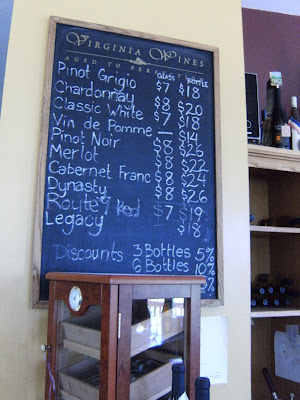 VIRGINIA WINES
AGED TO PERFECTION
glass bottle
Pinot Grigio $7 $18
Chardonnay $8 $20
Classic White $7 $18
Vin de Pomme — $14
Pinot Noir $8 $26
Merlot $8 $22
Cabernet Franc $8 $24
Dynasty $8 $26
Route 9 Red $7 $19
Legacy $18
Discounts 3 Bottles 5%
6 Bottles 10%
%